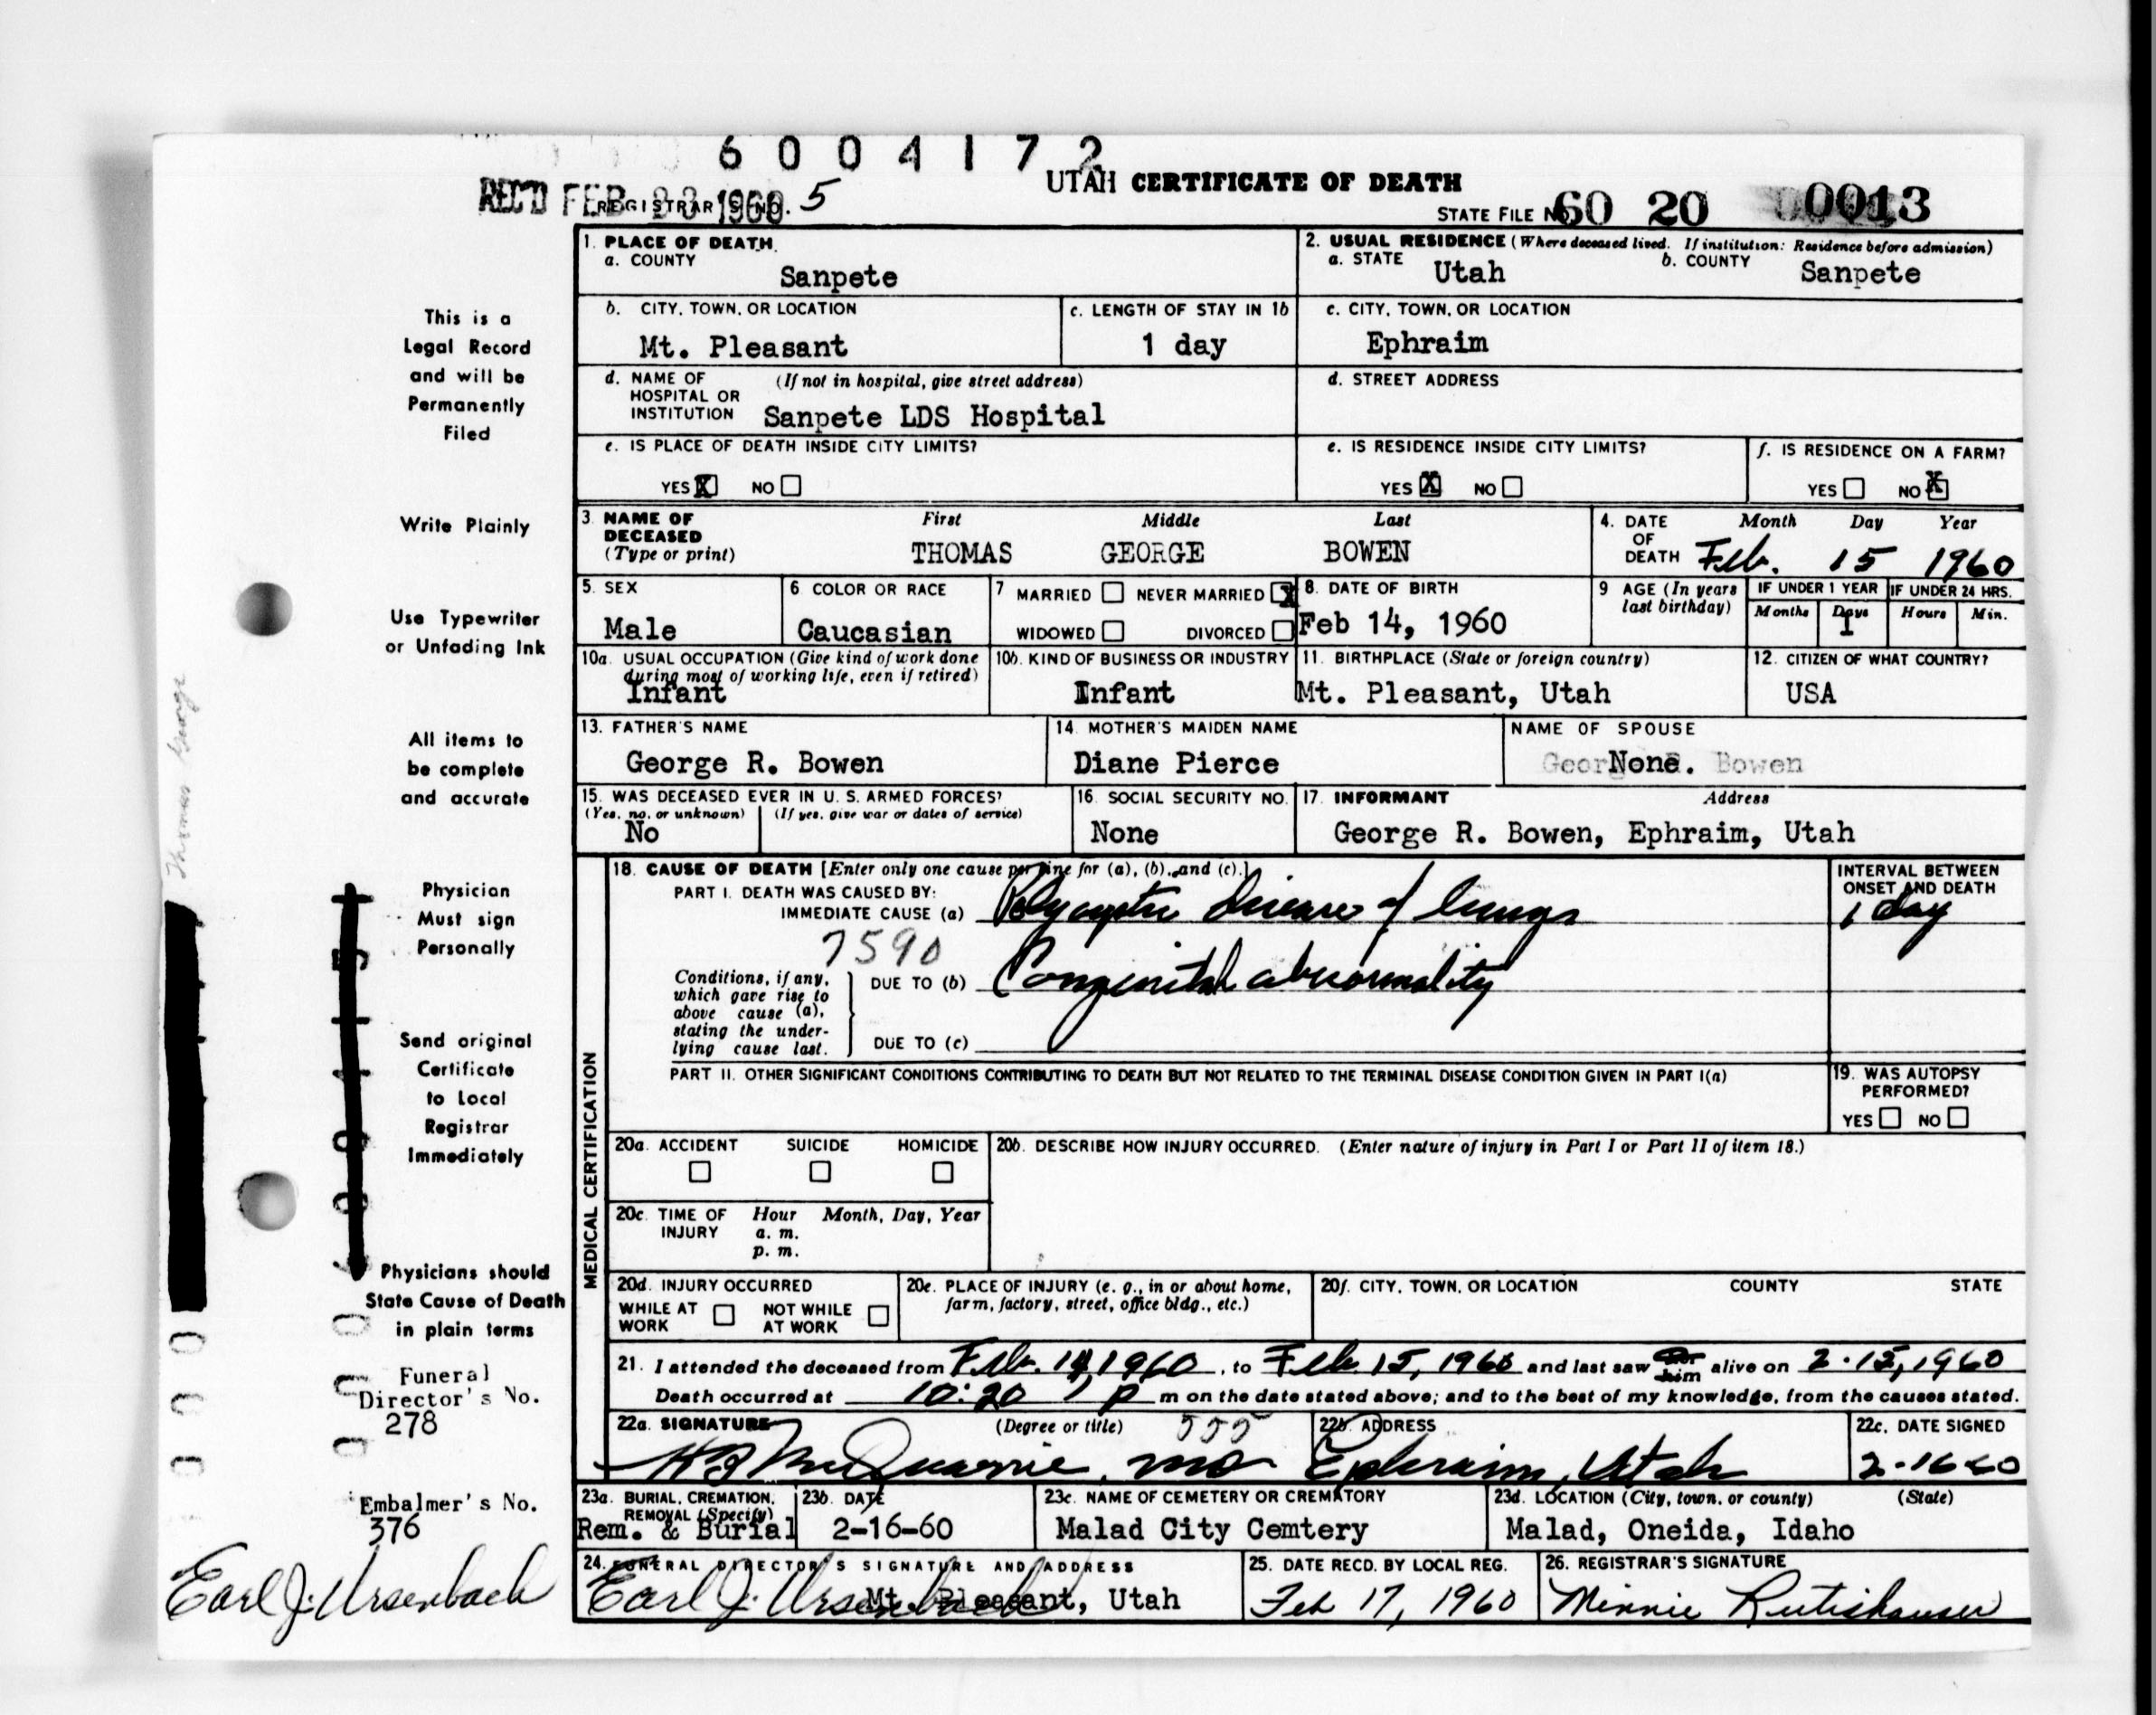 6004172
REC'D FEB 23 1960
REGISTRAR'S NO. 5
UTAH CERTIFICATE OF DEATH
STATE FILE NO. 60 20 0013
1. PLACE OF DEATH
a. COUNTY
Sanpete
2. USUAL RESIDENCE (Where deceased lived. If institution: Residence before admission)
a. STATE Utah b. COUNTY Sanpete
b. CITY, TOWN, OR LOCATION
Mt. Pleasant
c. LENGTH OF STAY IN 1b
1 day
c. CITY, TOWN, OR LOCATION
Ephraim
d. NAME OF HOSPITAL OR INSTITUTION (If not in hospital, give street address)
Sanpete LDS Hospital
d. STREET ADDRESS
e. IS PLACE OF DEATH INSIDE CITY LIMITS?
YES X NO
e. IS RESIDENCE INSIDE CITY LIMITS?
YES X NO
f. IS RESIDENCE ON A FARM?
YES NO X
3. NAME OF DECEASED (Type or print)
First Middle Last
THOMAS GEORGE BOWEN
4. DATE OF DEATH Month Day Year
Feb. 15 1960
5. SEX
Male
6 COLOR OR RACE
Caucasian
7 MARRIED NEVER MARRIED X
WIDOWED DIVORCED
8. DATE OF BIRTH
Feb 14, 1960
9 AGE (In years last birthday)
IF UNDER 1 YEAR IF UNDER 24 HRS.
Months Days Hours Min.
1
10a. USUAL OCCUPATION (Give kind of work done during most of working life, even if retired)
Infant
10b. KIND OF BUSINESS OR INDUSTRY
Infant
11. BIRTHPLACE (State or foreign country)
Mt. Pleasant, Utah
12. CITIZEN OF WHAT COUNTRY?
USA
13. FATHER'S NAME
George R. Bowen
14. MOTHER'S MAIDEN NAME
Diane Pierce
NAME OF SPOUSE
None
15. WAS DECEASED EVER IN U. S. ARMED FORCES?
(Yes, no, or unknown) (If yes, give war or dates of service)
No
16. SOCIAL SECURITY NO.
None
17. INFORMANT Address
George R. Bowen, Ephraim, Utah
MEDICAL CERTIFICATION
18. CAUSE OF DEATH [Enter only one cause per line for (a), (b), and (c).]
PART I. DEATH WAS CAUSED BY:
IMMEDIATE CAUSE (a) Polycystic disease of lungs
INTERVAL BETWEEN ONSET AND DEATH
1 day
7590
Conditions, if any, which gave rise to above cause (a), stating the underlying cause last.
DUE TO (b) Congenital abnormality
DUE TO (c)
PART II. OTHER SIGNIFICANT CONDITIONS CONTRIBUTING TO DEATH BUT NOT RELATED TO THE TERMINAL DISEASE CONDITION GIVEN IN PART I(a)
19. WAS AUTOPSY PERFORMED?
YES NO
20a. ACCIDENT SUICIDE HOMICIDE
20b. DESCRIBE HOW INJURY OCCURRED. (Enter nature of injury in Part I or Part II of item 18.)
20c. TIME OF INJURY Hour Month, Day, Year
a. m.
p. m.
20d. INJURY OCCURRED
WHILE AT WORK NOT WHILE AT WORK
20e. PLACE OF INJURY (e. g., in or about home, farm, factory, street, office bldg., etc.)
20f. CITY, TOWN, OR LOCATION COUNTY STATE
21. I attended the deceased from Feb. 14, 1960, to Feb. 15, 1960 and last saw him alive on 2-15, 1960
Death occurred at 10:20 p m on the date stated above; and to the best of my knowledge, from the causes stated.
22a. SIGNATURE (Degree or title) 555
McQuarrie, MD
22b. ADDRESS
Ephraim, Utah
22c. DATE SIGNED
2-16-60
23a. BURIAL, CREMATION, REMOVAL (Specify)
Rem. & Burial
23b. DATE
2-16-60
23c. NAME OF CEMETERY OR CREMATORY
Malad City Cemtery
23d. LOCATION (City, town, or county) (State)
Malad, Oneida, Idaho
24. FUNERAL DIRECTOR'S SIGNATURE AND ADDRESS
Earl J. Ursenbach
Mt. Pleasant, Utah
25. DATE RECD. BY LOCAL REG.
Feb 17, 1960
26. REGISTRAR'S SIGNATURE
Minnie Rutishauser
This is a
Legal Record
and will be
Permanently
Filed
Write Plainly
Use Typewriter
or Unfading Ink
All items to
be complete
and accurate
Physician
Must sign
Personally
Send original
Certificate
to Local
Registrar
Immediately
Physicians should
State Cause of Death
in plain terms
Funeral
Director's No.
278
Embalmer's No.
376
Earl J. Ursenbach
Thomas George